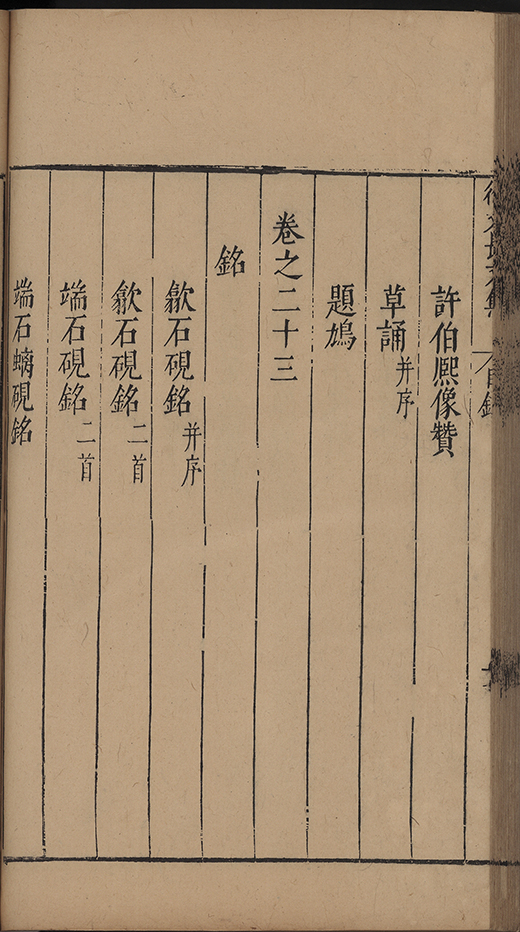 許伯熈像贊
草誦并序
題鳩
卷之二十三
銘
歙石硯銘并序
歙石硯銘二首
端石硯銘二首
端石螭硯銘